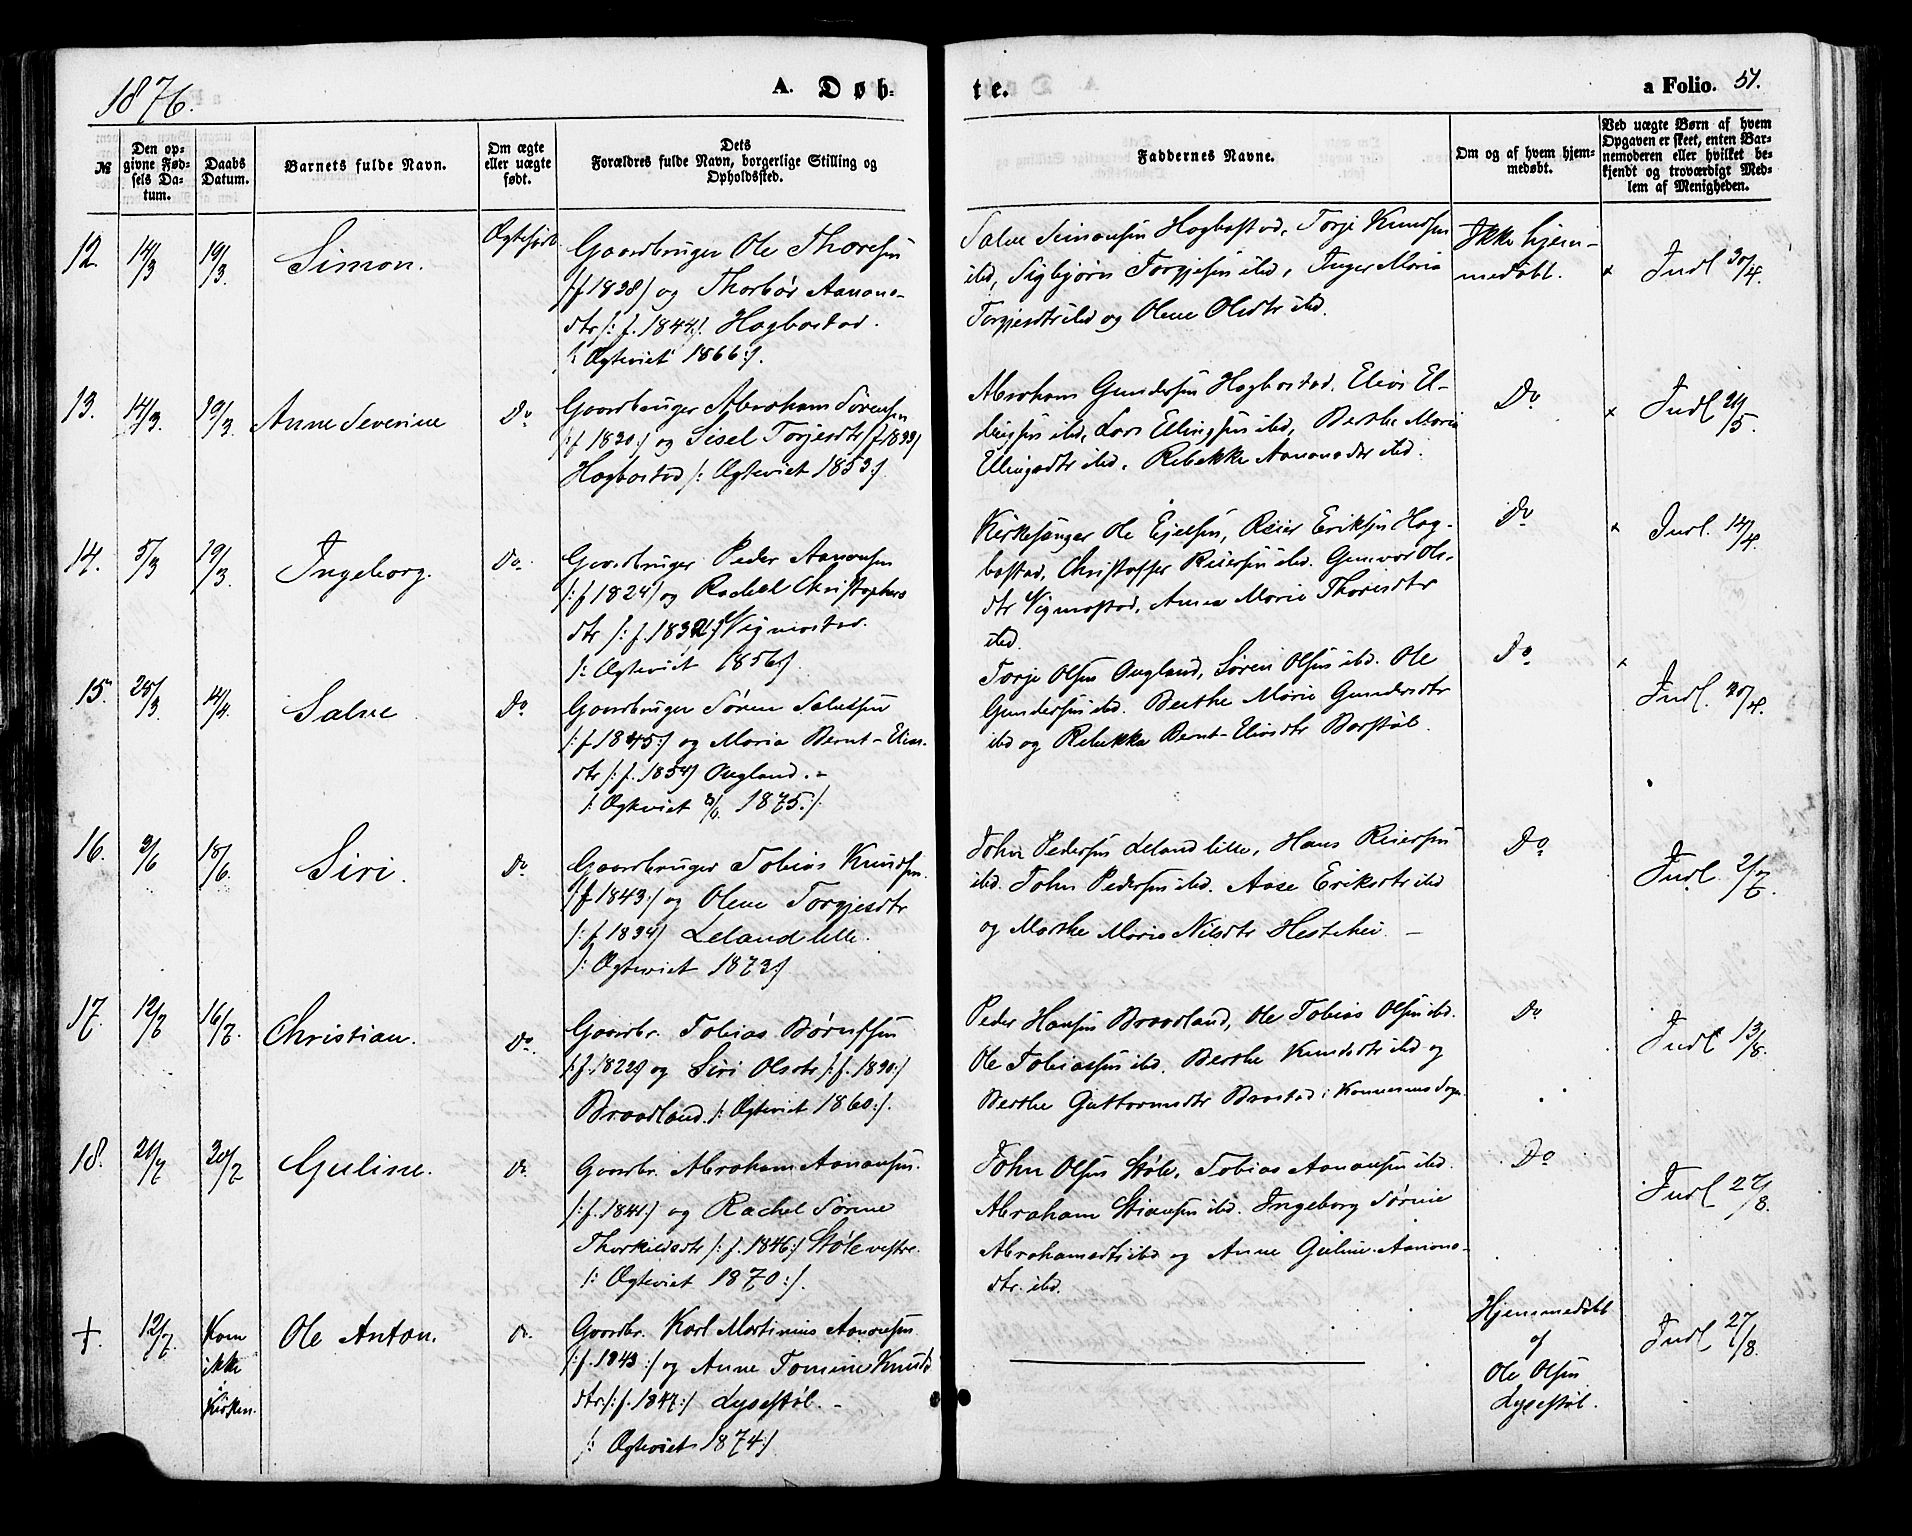 1876.
A. Døb-
te.
a Folio. 51.
№
Den op-
givne Fød-
sels Da-
tum.
Daabs
Datum.
Barnets fulde Navn.
Om ægte
eller uægte
født.
Dets
Forældres fulde Navn, borgerlige Stilling og
Opholdssted.
Faddernes Navne.
Om og af hvem hjem-
medøbt.
Ved uægte Børn af hvem
Opgaven er skeet, enten Bar-
nemoderen eller hvilket be-
kjendt og troværdigt Med-
lem af Menigheden.
12
14/3
19/3
Simon.
Ægtefødt
Gaardbruger Ole Thoresen
/: f 1838/ og Thorbør Aanons-
dtr /: f. 1844/. Hogbostad.
/: Ægteviet 1866:/.
Salve Simonsen Hogbostad, Torje Knudsen
ibd, Sigbjørn Torgjesen ibd, Inger Maria
Torgjesdtr ibd og Olene Olsdtr ibd.
Ikke hjem-
medøbt.
x
Indl 30/4.
13.
14/3
19/3.
Anne Severine
Do
Gaardbruger Abraham Sørensen
/: f 1830:/ og Sisel Torjesdtr /f 1833/
Hogbostad /: Ægteviet 1853:/
Abraham Gundersen Hogbostad. Elias El-
lingsen ibd, Lars Ellingsen ibd, Berthe Maria
Ellingsdtr ibd. Rebekke Aanonsdtr ibd.
Do
x
Indl 21/5.
14.
5/3
19/3.
Ingeborg.
Do
Gaardbruger Peder Aanonsen
/: f 1824/ og Rachel Christophers
dtr /: f. 1832:/ Vigmostad.
/: Ægteviet 1856/.
Kirkesanger Ole Ejelsen, Reier Eriksen Hog-
bostad, Christoffer Reiersen ibd. Gunvor Ols-
dtr Vigmostad, Anna Marie Thoresdtr
ibd.
Do
x
Indl. 14/4.
15.
25/3
14/4.
Salve
Do
Gaardbruger Søren Salvesen
/: f 1845:/ og Maria Bernt-Elias-
dtr /: f. 1854/ Augland. -
/: Ægteviet 3/6. 1875./:
Torje Olsen Augland, Søren Olsen ibd. Ole
Gundersen ibd. Berthe Marie Gundersdtr
ibd og Rebekka Bernt-Eliasdtr Barstøl.
Do
x
Indl. 20/4.
16.
3/6
18/6.
Siri.
Do
Gaardbruger Tobias Knudsen.
/: f 1843:/ og Olene Torgjesdtr
/: f. 1834/ Leland lille.
/: Ægteviet 1873:/
John Pedersen Leland lille, Hans Reiersen
ibd. John Pedersen ibd. Aase Eriksdtr ibd
og Marthe Maria Nilsdtr Hestehei. -
Do
Indl 2/7.
17.
12/7
16/7.
Christian.
Do.
Gaardbr. Tobias Børufsen
/: f. 1822/ og Siri Olsdtr /: f. 1830:/
Braadland. /: Ægteviet 1860:/.
Peder Hansen Braadland, Ole Tobias Olsen ibd.
Ole Tobiassen ibd. Berthe Knudsdtr ibd og
Berthe Guttormsdtr Brastad i Konnesmo Sogn
Do
Indl 13/8.
18.
21/7
30/7
Guline.
Do.
Gaardbr. Abraham Aanonsen.
/: f. 1841:/ og Rachel Sørine
Thorkildsdtr /: f. 1846:/ Støle vestre.
/: Ægteviet 1870:/.
John Olsen Støle, Tobias Aanonsen ibd.
Abraham Stiansen ibd. Ingeborg Sørine
Abrahamsdtr ibd og Anne Guline Aanons-
dtr. ibd.
Do
Indl 27/8.
+
12/7.
Kom
ikke
i
Kirken.
Ole Anton.
Do.
Gaardbr. Karl Martinius Aanonsen
/: f. 1843:/ og Anne Tomine Knuds
dtr /: f. 1847:/ Lysestøl. -
/: Ægteviet 1874:/
Hjemmedøbt
af
Ole Olsen
Lysestøl.
Indl 27/8.